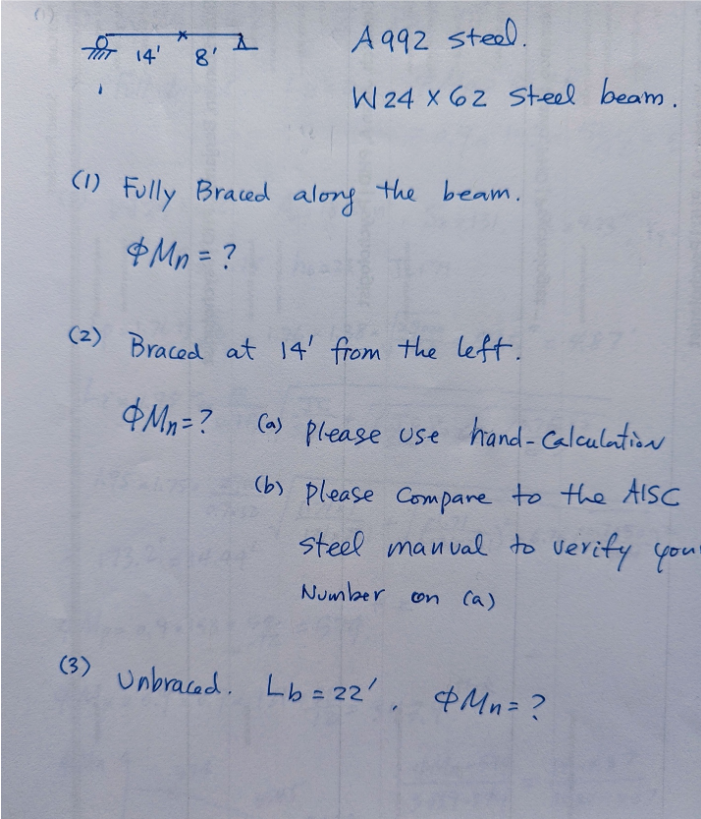 A992 steel.
14' 8'
W24 X 62 Steel beam.
(1) Fully Braced along the beam.
ΦMn = ?
(2) Braced at 14' from the left.
ΦMn = ? (a) please use hand-Calculation
(b) please Compare to the AISC
Steel manual to verify your
Number on (a)
(3) Unbraced. Lb = 22'. ΦMn = ?